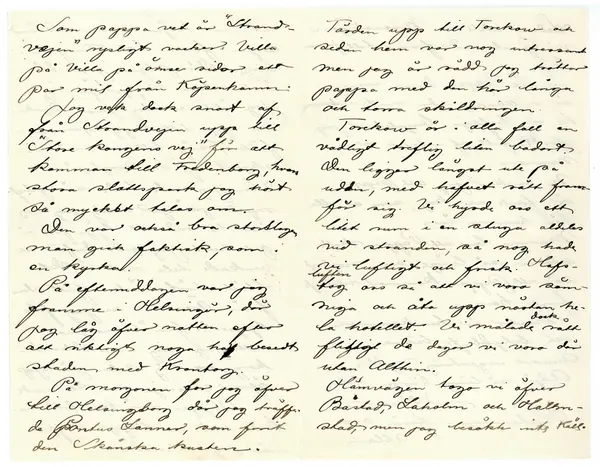 Som pappa vet är "Strand-
vejen" rysligt vacker. Villa
på Villa på ömse sidor ett
par mil från Köpenhamn.
Jag vek dock snart af
från Strandvejen upp till
"Store kongens vej" för att
komman till Fredenborg, hvars
stora slottspark jag hört
så myckket talas om.
Den var också bra storslagen
man gick faktisk, som i
en kyrka.
På eftermiddagen var jag
framme i Helsingör, där
jag låg öfver natten efter
att riktigt noga ha besedt
staden med Kronborg.
På morgonen for jag öfver
till Helsingborg där jag träffa-
de Pontus Lanner, som for it
den Skånska kusten.
Färden upp till Torekow och
sedan hem var nog intressant
men jag är rädd jag tröttar
pappa med den här långa
och torra skildringen.
Torekow är i alla fall en
väldigt treflig liten badort.
Den ligger längst ute på
udden, med hafvet rätt framm
för sig. Vi hyrde oss ett
litet rum i en stuga aldeles
vid stranden, så nog hade
vi luftigt och friskt. Hafs-
luften
tog oss så att vi vora
och äta upp nästan he-
la hotellet. Vi målade dock rätt
flitigt de dagar vi vora där
utan Althin.
Hemvägen togo vi öfver
Båstad, Laholm och Halm-
stad, men jag besökte